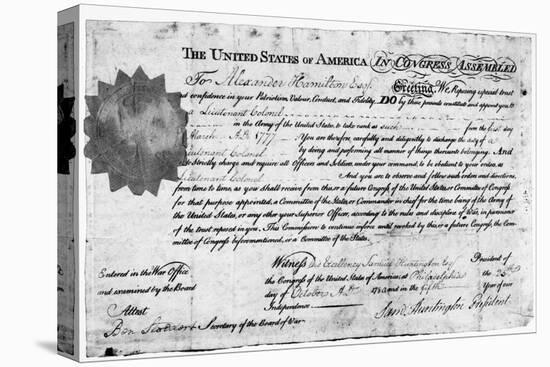 THE UNITED STATES OF AMERICA IN CONGRESS ASSEMBLED
To Alexander Hamilton Esqr. Greeting, We, Reposing especial trust
and confidence in your Patriotism, Valour, Conduct, and Fidelity, DO by these presents constitute and appoint you to
be a Lieutenant Colonel
in the Army of the United States, to take rank as such from the first day
of March A.D. 1777. You are therefore, carefully and diligently to discharge the duty of a
Lieutenant Colonel by doing and performing all manner of things thereunto belonging. And
we do strictly charge and require all Officers and Soldiers under your command, to be obedient to your orders, as
Lieutenant Colonel And you are to observe and follow such orders and directions,
from time to time, as you shall receive from this or a future Congress of the United States, or Committee of Congress
for that purpose appointed, a Committee of the States, or Commander in chief for the time being of the Army of
the United States, or any other your Superior Officer, according to the rules and discipline of War, in pursuance
of the trust reposed in you. This Commission to continue in force until revoked by this, or a future Congress, the Com-
mittee of Congress beforementioned, or a Committee of the States.
Entered in the War Office
and examined by the Board
Attest
Ben Stoddert Secretary of the Board of War.
Witness His Excellency Samuel Huntington Esq President of
the Congress of the United States of America, at Philadelphia the 25th
day of October A.D. 1780 and in the fifth Year of our
Independence
Sam. Huntington President